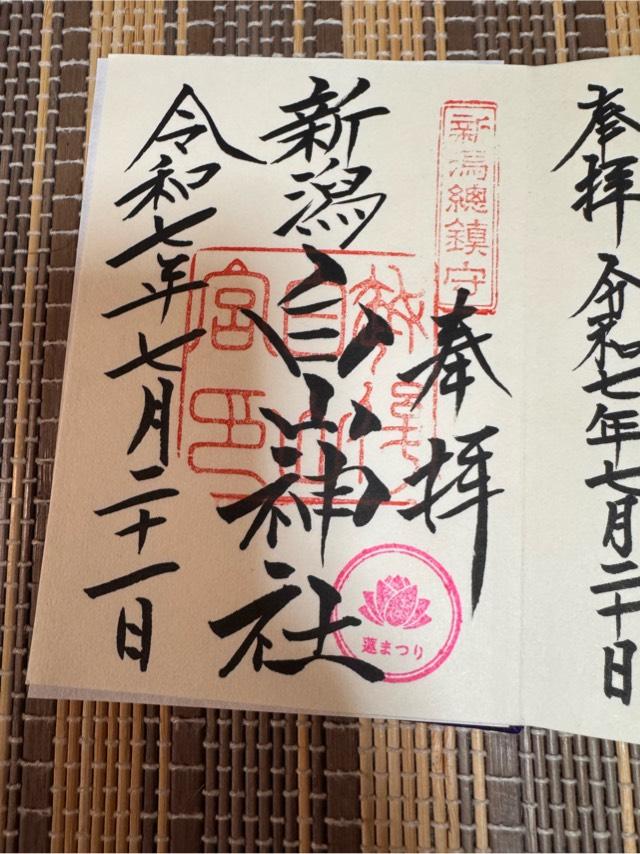 奉拝
令和七年七月二十日
新潟總鎮守
奉拝
新潟白山神社
令和七年七月二十一日
蓮まつり